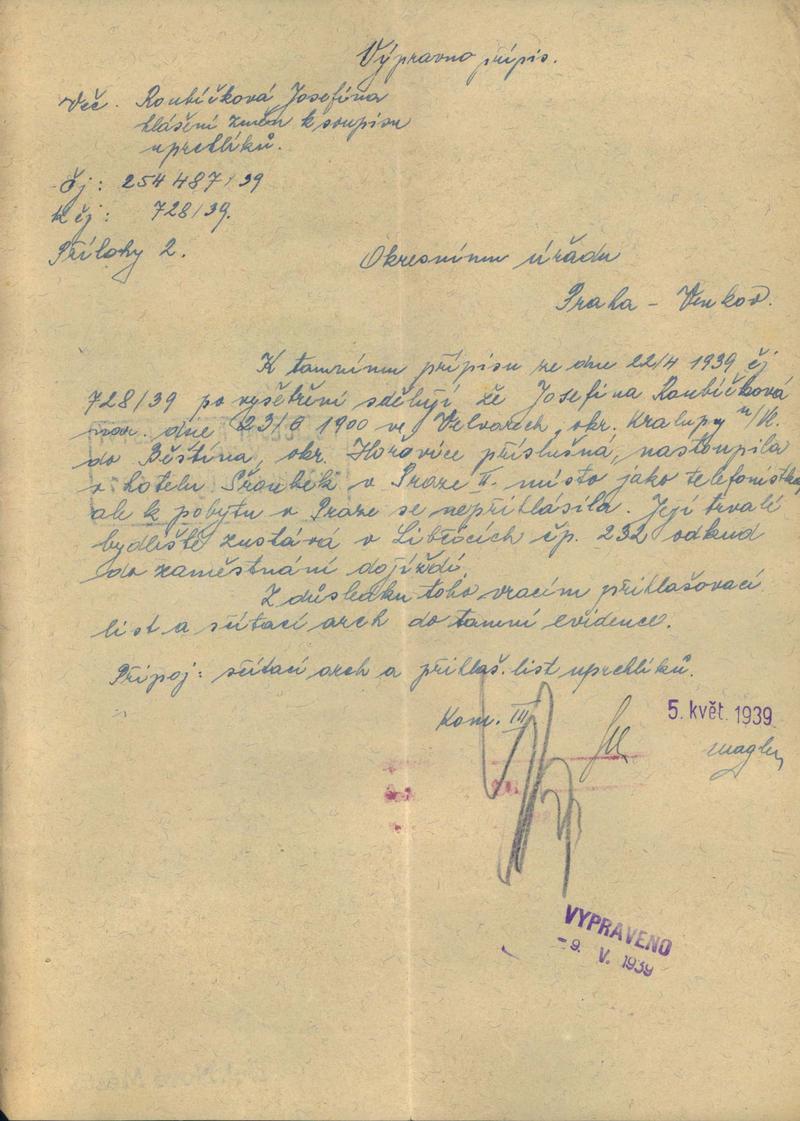 Výpravno přípis.
Věc. Roubíčková Josefína
hlášení změn k soupisu
uprchlíků.
Čj: 254 487/39
k čj: 728/39.
Přílohy 2.
Okresnímu úřadu
Praha – Venkov.
K tamnímu přípisu ze dne 22/4 1939 čj
728/39 po vyšetření sděluji že Josefína Roubíčková
nar. dne 23/6 1900 ve Velvarech, okr. Kralupy n/Vl.
do Běštína, okr. Hořovice příslušná, nastoupila
v hotelu Šroubek v Praze II. místo jako telefonistka
ale k pobytu v Praze se nepřihlásila. Její trvalé
bydliště zustává v Libčicích čp. 232 odkud
do zaměstnání dojíždí.
Z důsledku toho vracím přihlašovací
list a sčítací arch do tamní evidence.
Připoj: sčítací arch a přihlaš. list uprchlíků.
Kom. III
5. květ. 1939
VYPRAVENO
- 9. V. 1939